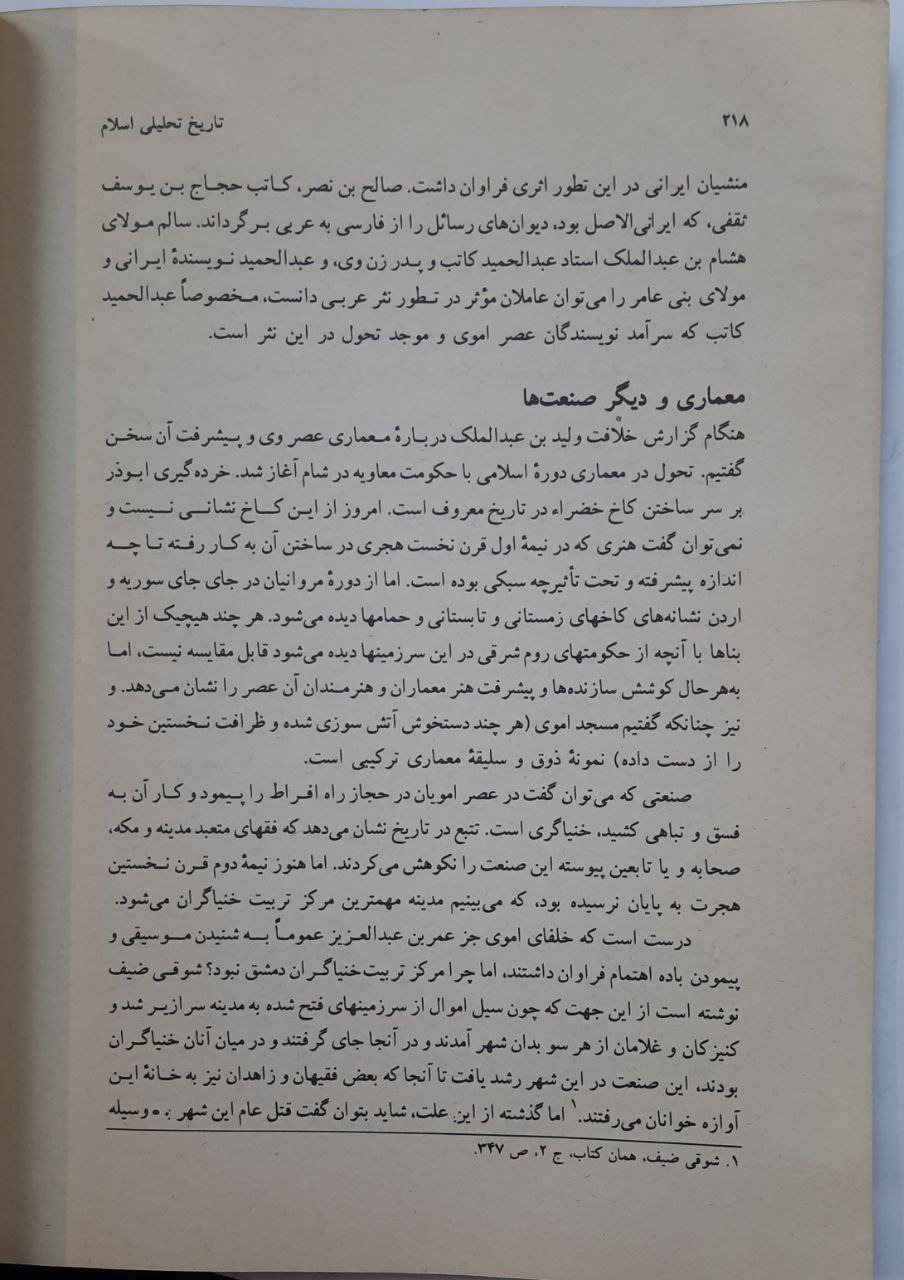 ۲۱۸
تاریخ تحلیلی اسلام
منشیان ایرانی در این تطور اثری فراوان داشت. صالح بن نصر، کاتب حجاج بن یوسف
ثقفی، که ایرانی‌الاصل بود، دیوان‌های رسائل را از فارسی به عربی برگرداند. سالم مولای
هشام بن عبدالملک استاد عبدالحمید کاتب و پدر زن وی، و عبدالحمید نویسندهٔ ایرانی و
مولای بنی عامر را می‌توان عاملان مؤثر در تطور نثر عربی دانست، مخصوصاً عبدالحمید
کاتب که سرآمد نویسندگان عصر اموی و موجد تحول در این نثر است.
معماری و دیگر صنعت‌ها
هنگام گزارش خلافت ولید بن عبدالملک دربارهٔ معماری عصر وی و پیشرفت آن سخن
گفتیم. تحول در معماری دورهٔ اسلامی با حکومت معاویه در شام آغاز شد. خرده‌گیری ابوذر
بر سر ساختن کاخ خضراء در تاریخ معروف است. امروز از این کاخ نشانی نیست و
نمی‌توان گفت هنری که در نیمهٔ اول قرن نخست هجری در ساختن آن به کار رفته تا چه
اندازه پیشرفته و تحت تأثیرچه سبکی بوده است. اما از دورهٔ مروانیان در جای جای سوریه و
اردن نشانه‌های کاخهای زمستانی و تابستانی و حمامها دیده می‌شود. هر چند هیچیک از این
بناها با آنچه از حکومتهای روم شرقی در این سرزمینها دیده می‌شود قابل مقایسه نیست، اما
به‌هرحال کوشش سازنده‌ها و پیشرفت هنر معماران و هنرمندان آن عصر را نشان می‌دهد. و
نیز چنانکه گفتیم مسجد اموی (هر چند دستخوش آتش سوزی شده و ظرافت نخستین خود
را از دست داده) نمونهٔ ذوق و سلیقهٔ معماری ترکیبی است.
صنعتی که می‌توان گفت در عصر امویان در حجاز راه افراط را پیمود و کار آن به
فسق و تباهی کشید، خنیاگری است. تتبع در تاریخ نشان می‌دهد که فقهای متعبد مدینه و مکه،
صحابه و یا تابعین پیوسته این صنعت را نکوهش می‌کردند. اما هنوز نیمهٔ دوم قرن نخستین
هجرت به پایان نرسیده بود، که می‌بینیم مدینه مهمترین مرکز تربیت خنیاگران می‌شود.
درست است که خلفای اموی جز عمربن عبدالعزیز عموماً به شنیدن موسیقی و
پیمودن باده اهتمام فراوان داشتند، اما چرا مرکز تربیت‌خنیاگران دمشق نبود؟ شوقی ضیف
نوشته است از این جهت که چون سیل اموال از سرزمینهای فتح شده به مدینه سرازیر شد و
کنیزکان و غلامان از هر سو بدان شهر آمدند و در آنجا جای گرفتند و در میان آنان خنیاگران
بودند، این صنعت در این شهر رشد یافت تا آنجا که بعض فقیهان و زاهدان نیز به خانهٔ این
آوازه خوانان می‌رفتند.۱ اما گذشته از این علت، شاید بتوان گفت قتل عام این شهر به وسیله
۱. شوقی ضیف، همان کتاب، ج ۲، ص ۳۴۷.